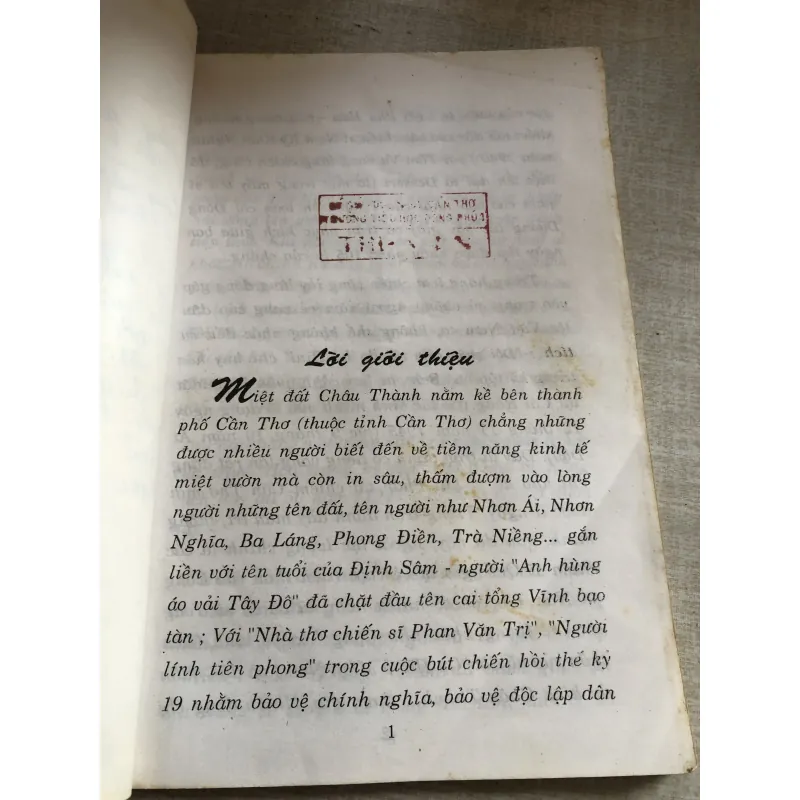 CẦN THƠ
TRƯỜNG TIỂU HỌC ĐÔNG PHÚ 1
Lời giới thiệu
Miệt đất Châu Thành nằm kề bên thành
phố Cần Thơ (thuộc tỉnh Cần Thơ) chẳng những
được nhiều người biết đến về tiềm năng kinh tế
miệt vườn mà còn in sâu, thấm đượm vào lòng
người những tên đất, tên người như Nhơn Ái, Nhơn
Nghĩa, Ba Láng, Phong Điền, Trà Niềng... gắn
liền với tên tuổi của Định Sâm - người "Anh hùng
áo vải Tây Đô" đã chặt đầu tên cai tổng Vĩnh bạo
tàn ; Với "Nhà thơ chiến sĩ Phan Văn Trị", "Người
lính tiên phong" trong cuộc bút chiến hồi thế kỷ
19 nhằm bảo vệ chính nghĩa, bảo vệ độc lập dân
1